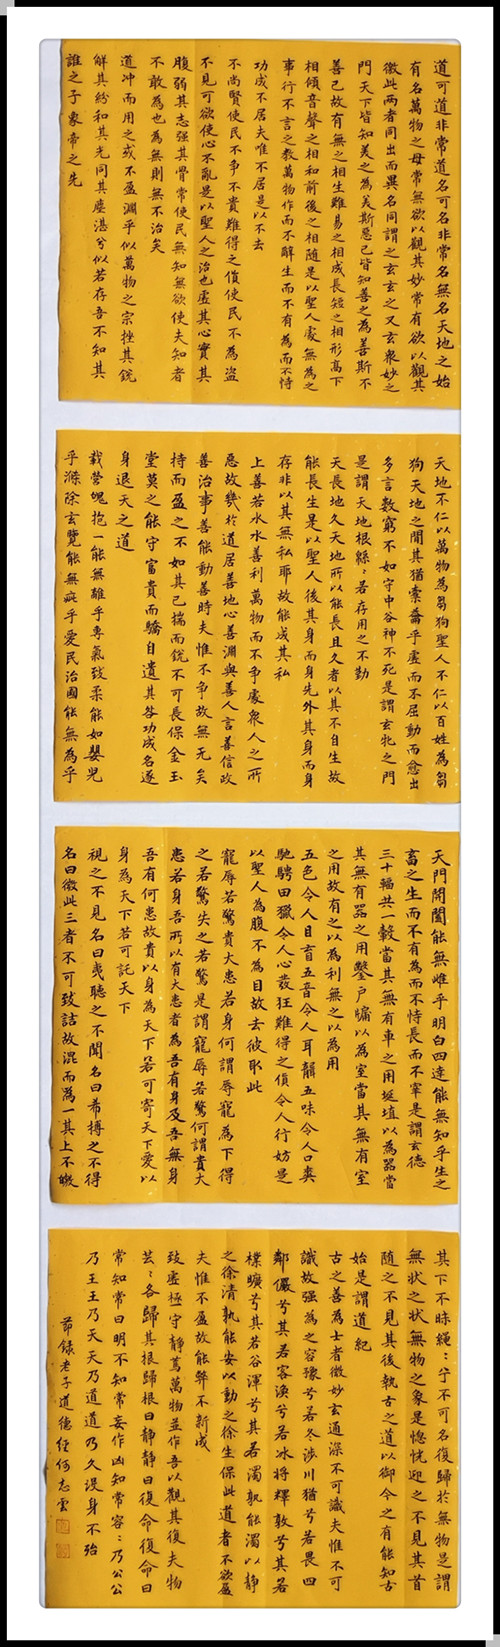 道可道非常道名可名非常名無名天地之始
有名萬物之母常無欲以觀其妙常有欲以觀其
徼此兩者同出而異名同謂之玄玄之又玄衆妙之
門天下皆知美之為美斯惡已皆知善之為善斯不
善已故有無之相生難易之相成長短之相形高下
相傾音聲之相和前後之相隨是以聖人處無為之
事行不言之教萬物作而不辭生而不有為而不恃
功成不居夫唯不居是以不去
不尚賢使民不争不貴難得之貨使民不為盜
不見可欲使心不亂是以聖人之治也虛其心實其
腹弱其志强其骨常使民無知無欲使夫知者
不敢為也為無則無不治矣
道冲而用之或不盈淵乎似萬物之宗挫其銳
解其紛和其光同其塵湛兮似若存吾不知其
誰之子象帝之先
天地不仁以萬物為芻狗聖人不仁以百姓為芻
狗天地之間其猶橐籥乎虛而不屈動而愈出
多言數窮不如守中谷神不死是謂玄牝之門
是謂天地根綿綿若存用之不勤
天長地久天地所以能長且久者以其不自生故
能長生是以聖人後其身而身先外其身而身
存非以其無私耶故能成其私
上善若水水善利萬物而不争處衆人之所
惡故幾於道居善地心善淵與善人言善信政
善治事善能動善時夫惟不争故無尤矣
持而盈之不如其已揣而銳不可長保金玉
堂莫之能守富貴而驕自遺其咎功成名遂
身退天之道
載營魄抱一能無離乎專氣致柔能如嬰兒
乎滌除玄覽能無疵乎愛民治國能無為乎
天門開闔能無雌乎明白四達能無知乎生之
畜之生而不有為而不恃長而不宰是謂玄德
三十輻共一轂當其無有車之用埏埴以為器當
其無有器之用鑿户牖以為室當其無有室
之用故有之以為利無之以為用
五色令人目盲五音令人耳聾五味令人口爽
馳騁田獵令人心發狂難得之貨令人行妨是
以聖人為腹不為目故去彼取此
寵辱若驚貴大患若身何謂辱寵為下得
之若驚失之若驚是謂寵辱若驚何謂貴大
患若身吾所以有大患者為吾有身及吾無身
吾有何患故貴以身為天下若可寄天下愛以
身為天下若可託天下
視之不見名曰夷聽之不聞名曰希搏之不得
名曰微此三者不可致詰故混而為一其上不皦
其下不昧繩繩兮不可名復歸於無物是謂
無狀之狀無物之象是惚恍迎之不見其首
隨之不見其後執古之道以御今之有能知古
始是謂道紀
古之善為士者微妙玄通深不可識夫惟不可
識故强為之容豫兮若冬涉川猶兮若畏四
鄰儼兮其若容渙兮若冰将釋敦兮其若
樸曠兮其若谷渾兮其若濁孰能濁以静
之徐清孰能安以動之徐生保此道者不欲盈
夫惟不盈故能弊不新成
致虛極守静篤萬物並作吾以觀其復夫物
芸芸各歸其根歸根曰静静曰復命復命曰
常知常曰明不知常妄作凶知常容容乃公公
乃王王乃天天乃道道乃久沒身不殆
節録老子道德經何志雲